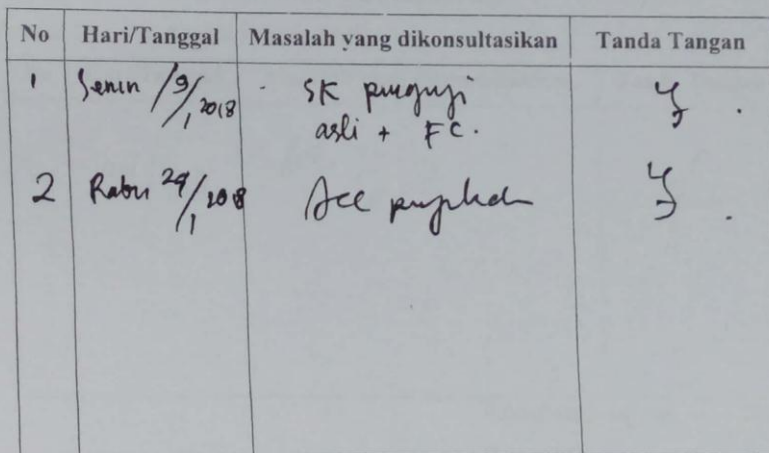 No Hari/Tanggal Masalah yang dikonsultasikan Tanda Tangan
1 Senin /9/1 2018 - SK penguji
asli + FC.
2 Rabu 24/1 2018 Acc